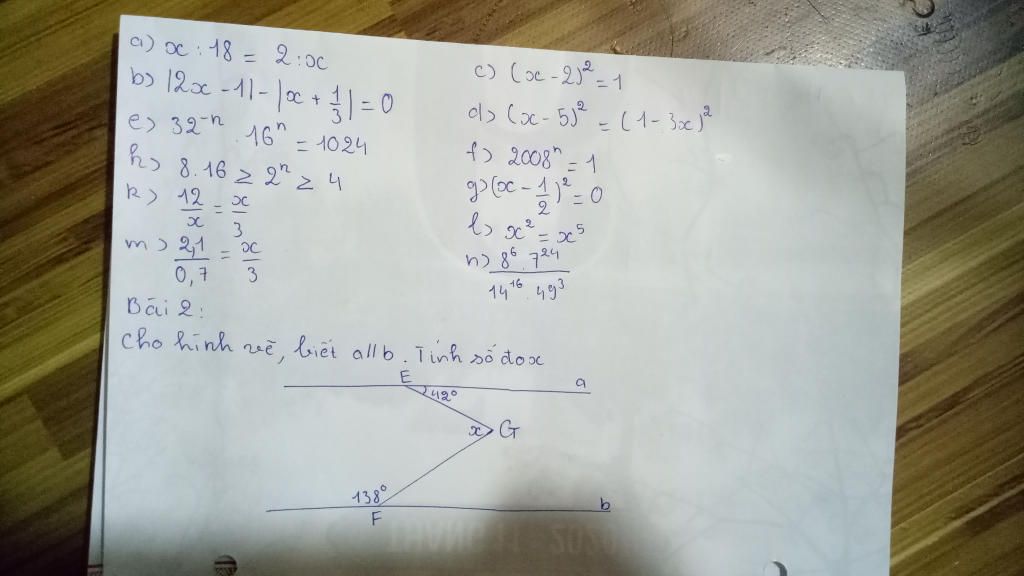 a) x : 18 = 2 : x
b) |2x - 1| - |x + 1/3| = 0
e) 32⁻ⁿ . 16ⁿ = 1024
h) 8.16 ≥ 2ⁿ ≥ 4
k) 12/x = x/3
m) 2,1/0,7 = x/3
c) (x - 2)² = 1
d) (x - 5)² = (1 - 3x)²
f) 2008ⁿ = 1
g) (x - 1/2)² = 0
l) x² = x⁵
n) 8⁶ . 7²⁴/14¹⁶ . 49³
Bài 2:
Cho hình vẽ, biết a//b. Tính số đo x
E
a
42°
x
G
138°
F
b